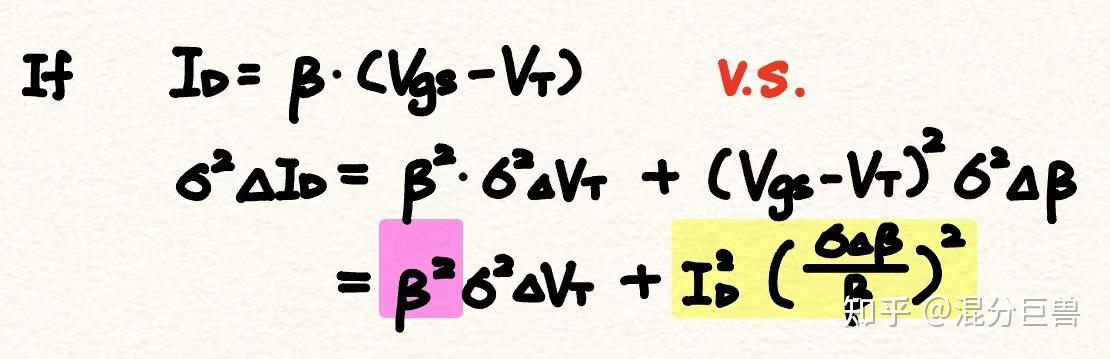 If I_D = β·(Vgs-V_T) v.s.
σ²ΔI_D = β²·σ²ΔV_T + (Vgs-V_T)²σ²Δβ
= β²σ²ΔV_T + I_D²(σΔβ/β)²
知乎 @混分巨兽